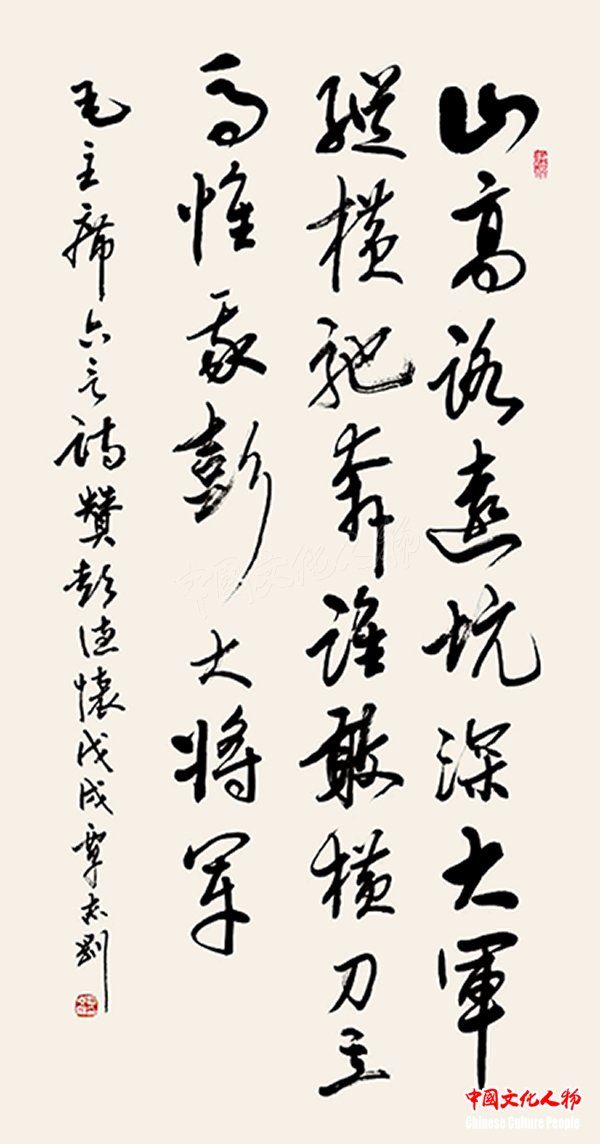 山高路遠坑深大軍
縱橫馳奔誰敢橫刀立
馬惟我彭大將军
毛主席六言詩贊彭德懷戊戌覃志剛
中國文化人物
中國文化人物
Chinese Culture People